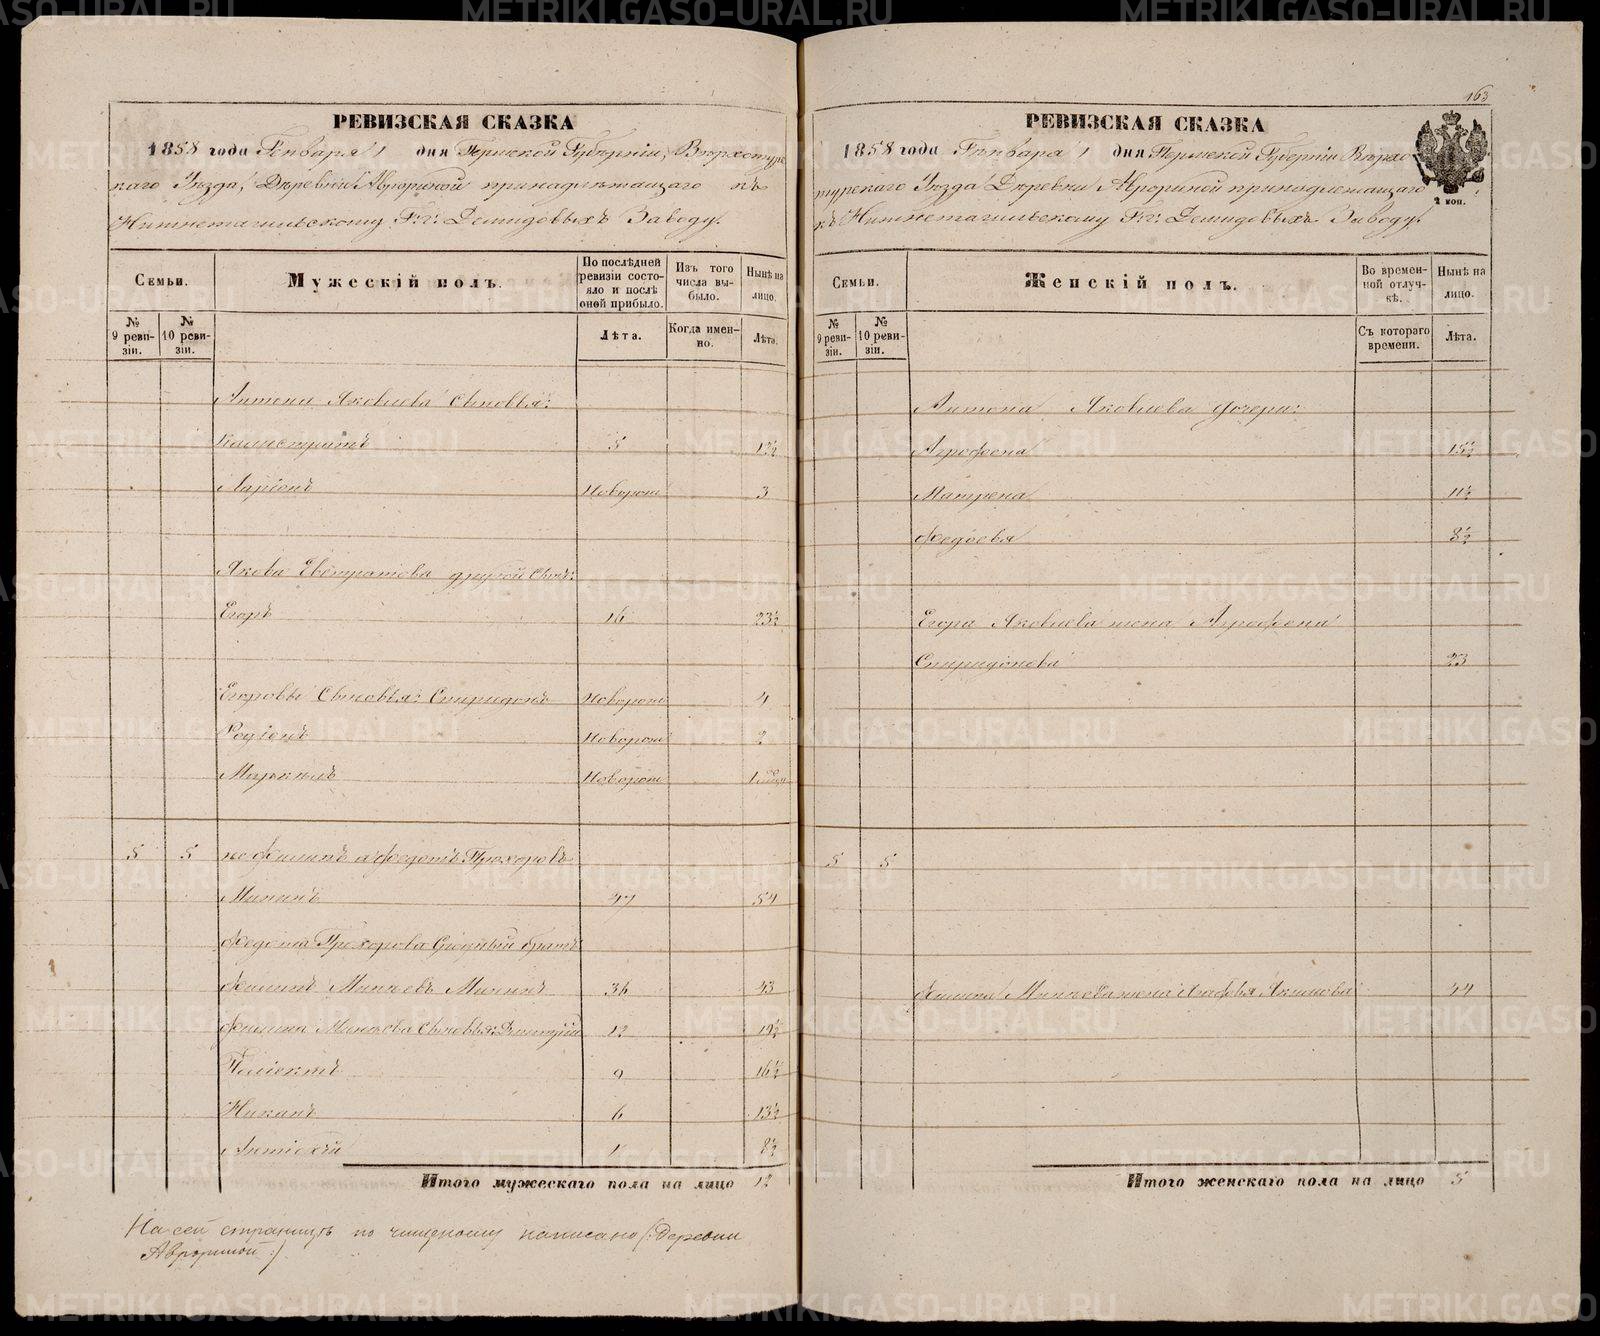 163
РЕВИЗСКАЯ СКАЗКА
1858 года Генваря 1 дня Пермской Губерніи, Верхотур
скаго Уѣзда, Деревни Аврориной принадлежащаго къ
Нижнетагильскому Г.г. Демидовыхъ Заводу.
Семьи.
Мужескій полъ.
По послѣдней ревизіи состояло и послѣ оной прибыло.
Изъ того числа выбыло.
Нынѣ на лицо.
№ 9 ревизіи.
№ 10 ревизіи.
Лѣта.
Когда именно.
Лѣта.
Антона Яковлева Сыновья:
Калистратъ 5 12½
Ларіонъ Новорож 3
Якова Евстратова другой Сынъ:
Егоръ 16 23½
Егоровы Сыновья: Спиридонъ Новорож 4
Родіонъ Новорож 2
Маркилъ Новорож 1
5 5 не Филипъ а Федотъ Прохоровъ
Мининъ 47 54
Федота Прохорова Сродный братъ
Филипъ Минѣевъ Мининъ 36 43
Филипа Минѣева Сыновья: Дмитрій 12 19½
Поліектъ 9 16½
Никанъ 6 13½
Антіохій 1 8½
Итого мужескаго пола на лицо 12
На сей страницѣ по чищеному написано (: Деревни
Аврориной :)
РЕВИЗСКАЯ СКАЗКА
1858 года Генваря 1 дня Пермской Губерніи Верхо
турскаго Уѣзда Деревни Аврориной принадлежащаго
къ Нижнетагильскому Г.г. Демидовыхъ Заводу.
2 коп.
Семьи.
Женскій полъ.
Во временной отлучкѣ.
Нынѣ на лицо.
№ 9 ревизіи.
№ 10 ревизіи.
Съ котораго времени.
Лѣта.
Антона Яковлева дочери:
Агрофена 15½
Матрена 11½
Федосья 8½
Егора Яковлева жена Агрофена
Спиридонова 23
5 5
Филипа Минѣева жена Акимова 44
Итого женскаго пола на лицо 5
METRIKI.GASO-URAL.RU